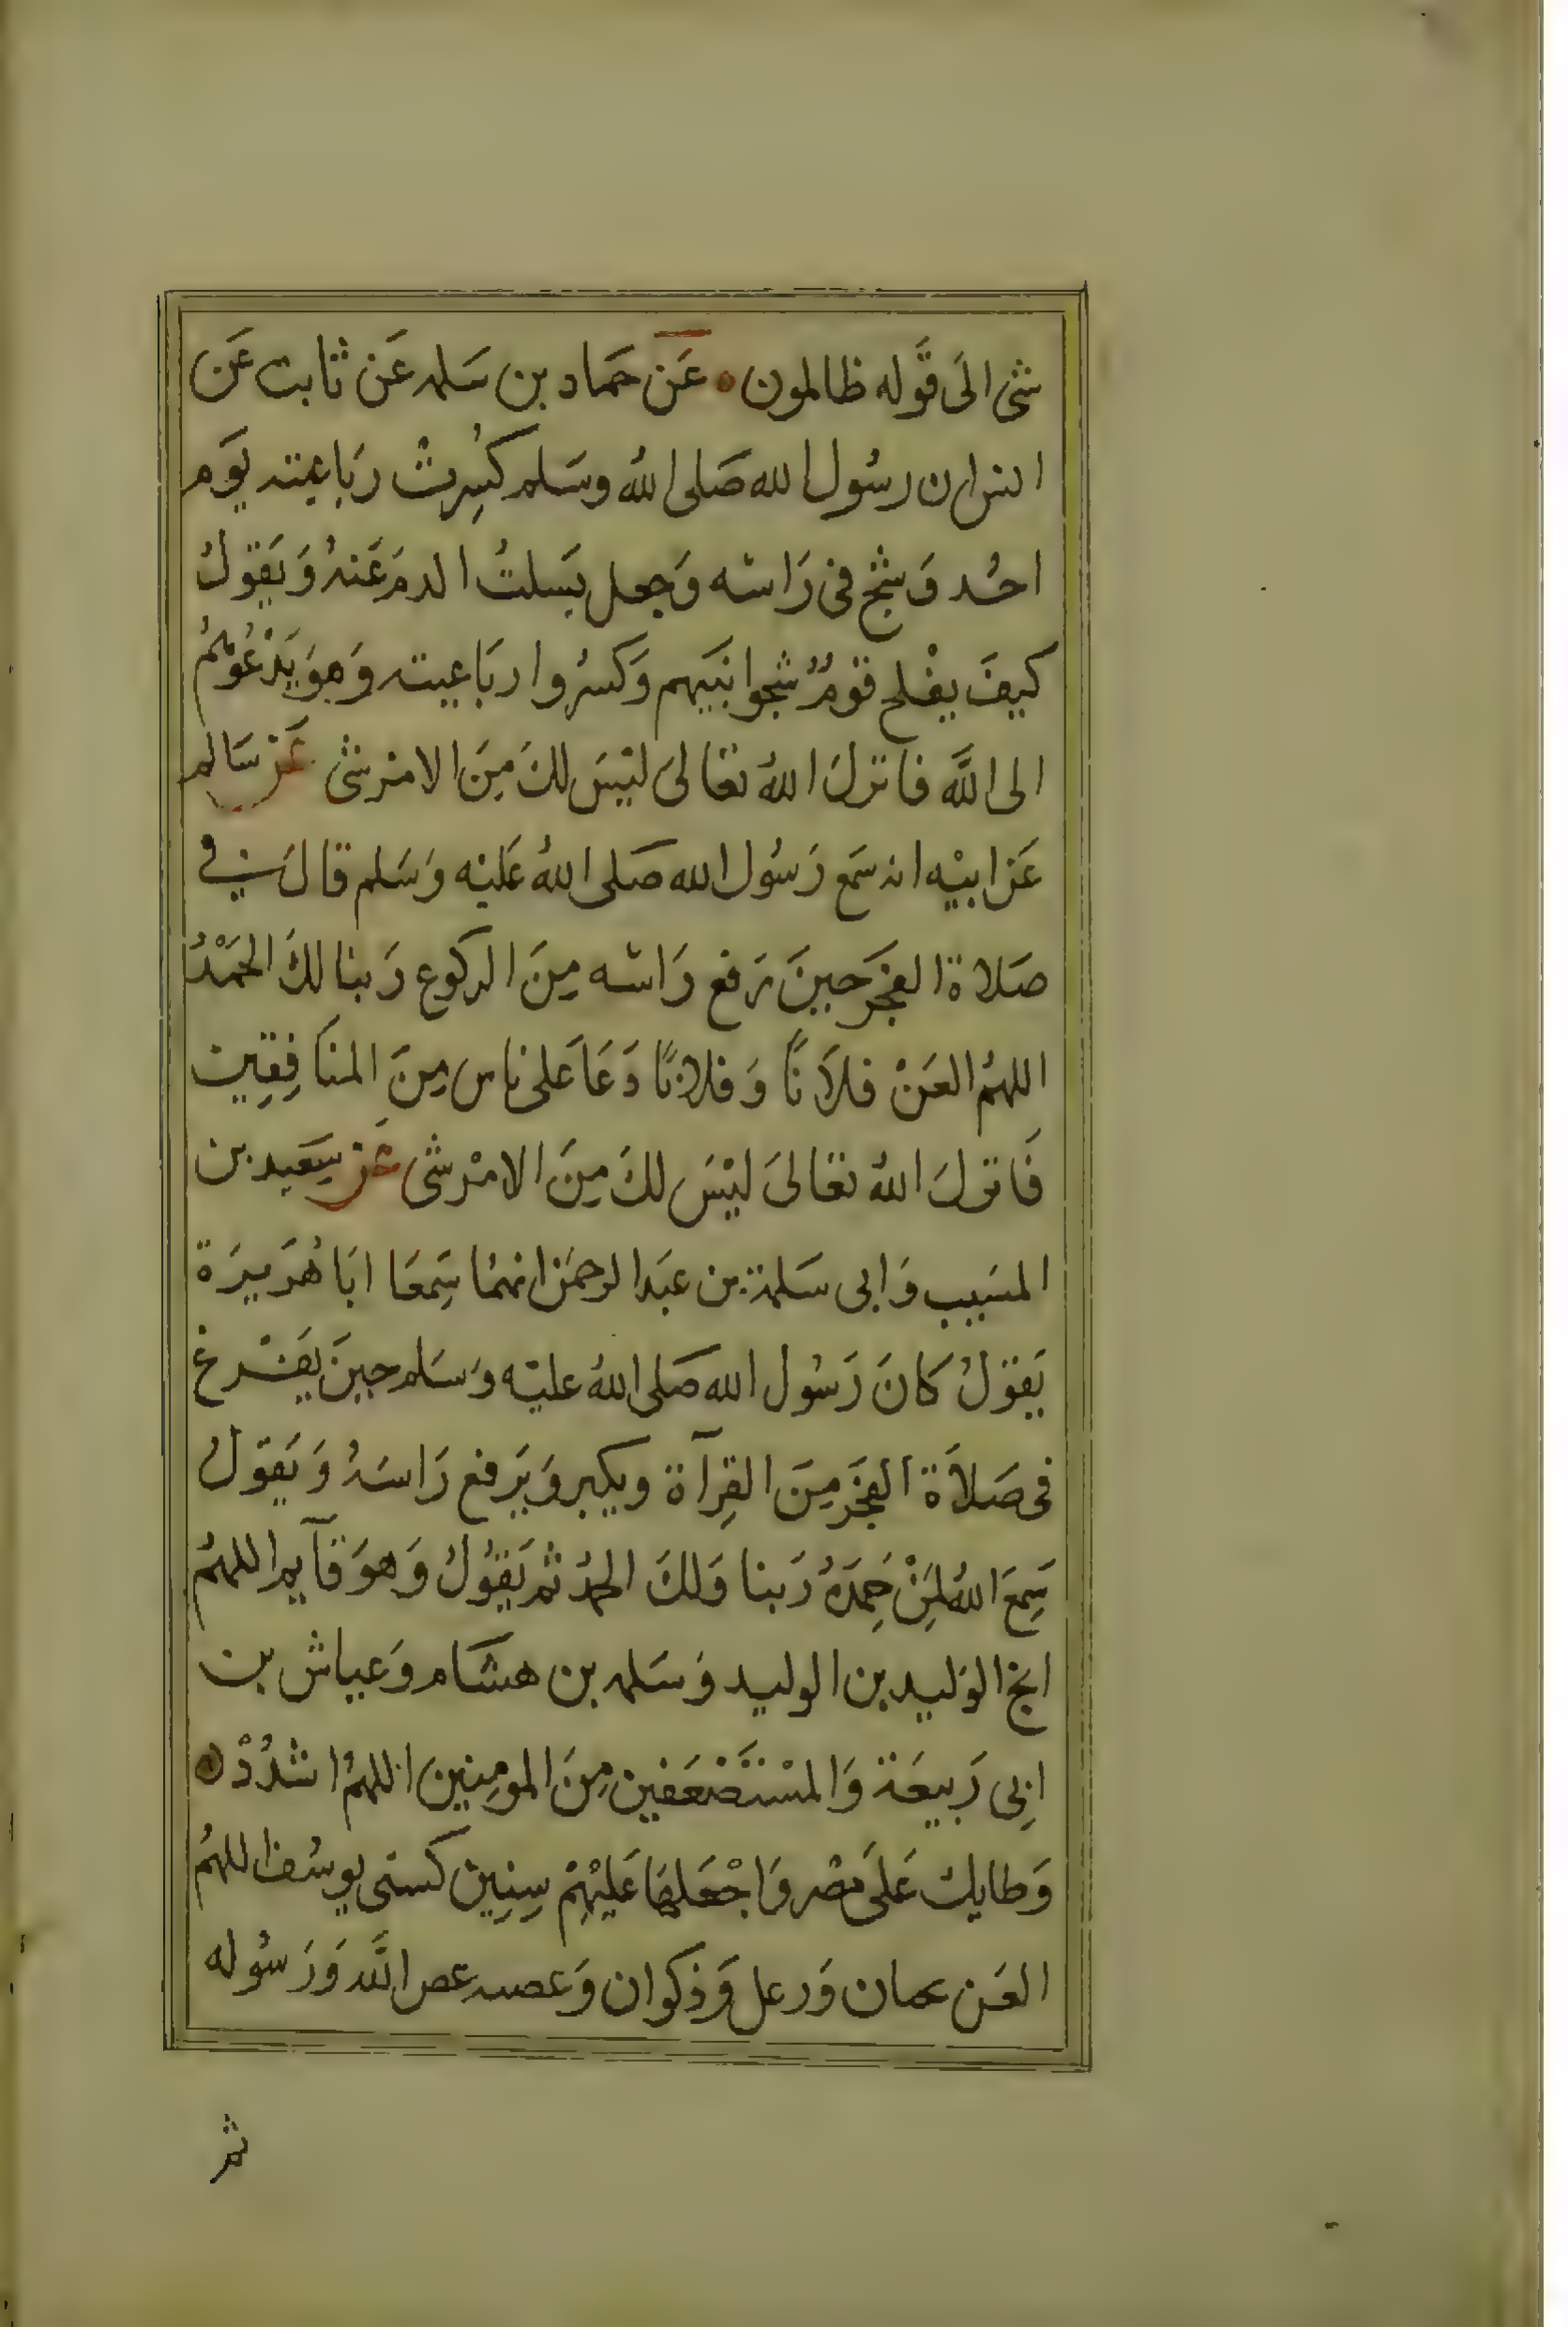 شى الَى قَوله ظالمون ۝ عَن حَماد بن سَلمه عَن ثابت عَن
انس ان رسُول الله صَلى اللهُ وسَلم كسُِرتْ رَباعيته يَوم
احُد وَشج فى رَاسه وَجعل يَسلتُ الدم عَنهُ وَيَقولُ
كيفَ يفْلح قومُ ٌ شجوا نَبَيهم وَكسرُوا ربَاعيته وَهوَ يَدْعُوهُم
الى اللَّه فانزلَ اللهُ تعَالىَ ليَسَ لكَ مِنَ الامر شى عَن سَالم
عَن ابيْه انه سَمع رَسُول الله صَلى اللهُ عَليْه وَسَلم قالَ فى
صَلاة الفجَر حينَ رَفع رَاسه مِنَ الركوع رَبنا لكَ الحَمْدُ
اللهمُ العَنْ فلاَنًا وَفلانًا دَعَا عَلى ناس مِنَ المنَافِقِين
فَانزلَ اللهُ تعَالىَ ليْسَ لكَ مِنَ الامْر شى عَن سَعيد بن
المسَيب وَابى سَلمة بن عبَد الرحمَن انهمُا سَمِعَا ابَا هُرَيرَة
يَقوَلُ كانَ رَسُول الله صَلى اللهُ عليْه وَسَلم حينَ يفَرْغ
فى صَلاَة الفجَر مِنَ القِرآة ويكبر وَيَرفع رَاسَهُ وَيَقولُ
سَمِعَ اللهُ لِمَنْ حَمِدَهُ رَبنا وَلكَ الحمدُ ثم يَقوُلُ وَهوَ قآيم اللهمُ
انج الوَليد بن الوليد وَسَلمه بن هشَام وَعياش بن
ابِى رَبيعَة وَالمسْتَضعَفين مِنَ المومِنينَ اللهمُ اشدُدْ ۝
وَطايك عَلَى مضر وَاجْعَلهَا عَليْهِمْ سِنِين كسنى يوسُف اللهمُ
العَن عمان وَرعل وَذكوان وَعصيه عص اللَّه وَرَسُوله
ثم